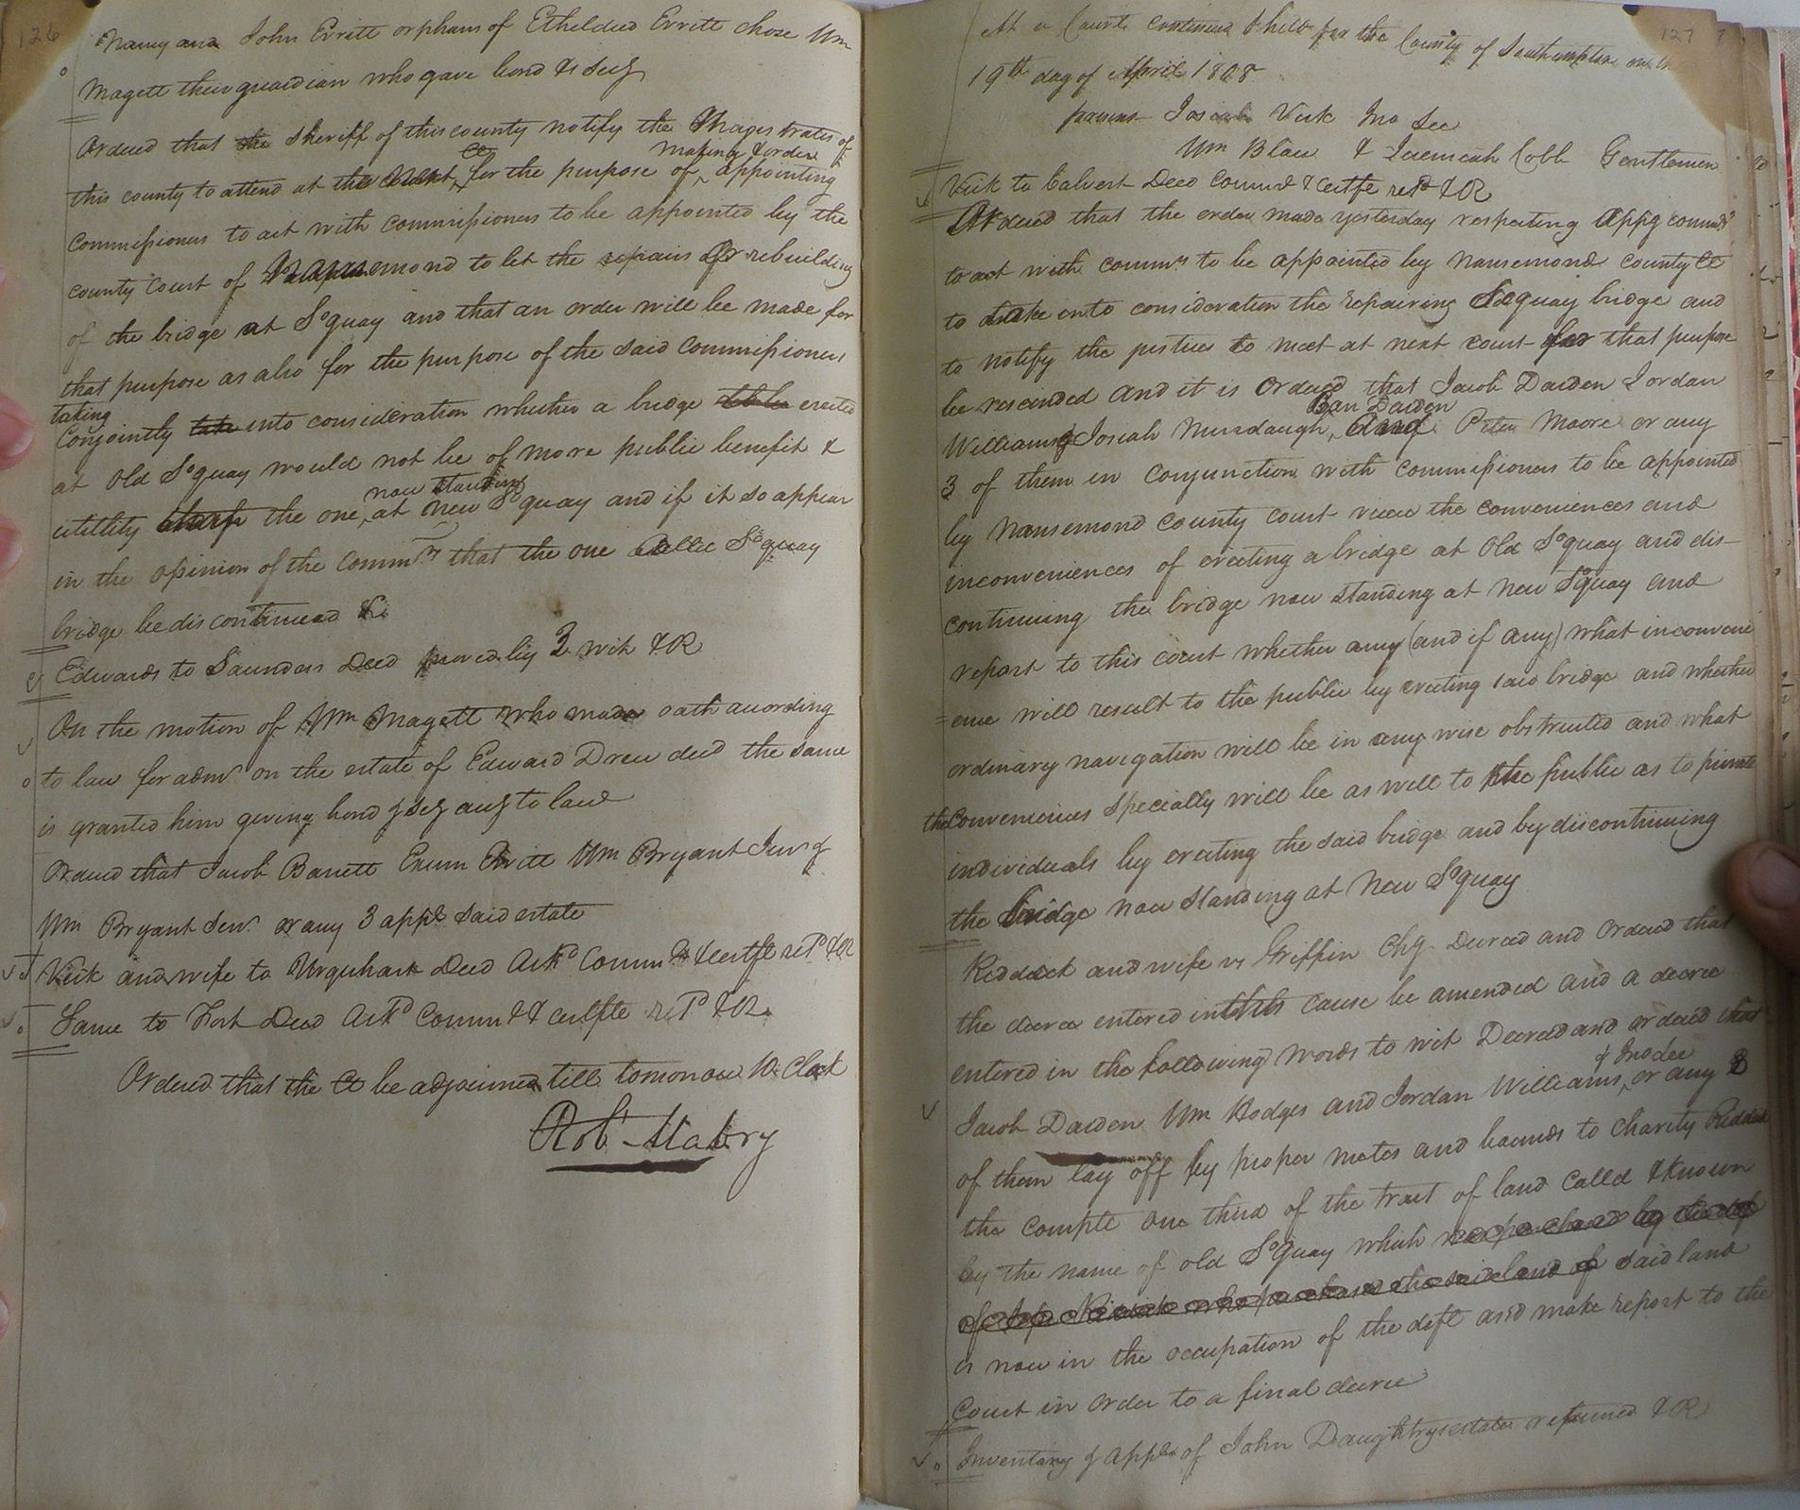 126
Nancy and John Erritt orphans of Etheldred Erritt chose Wm
Magett their guardian who gave bond & Secy
Ordered that the Sheriff of this county notify the Magistrates of
this county to attend at the next Ct for the purpose of making & order appointing
Commissioners to act with commissioners to be appointed by the
County Court of Nansemond to let the repairs or rebuilding
of the bridge at So quay and that an order will be made for
that purpose as also for the purpose of the said Commissioners
Conjointly taking into consideration whether a bridge erected
at Old So quay would not be of more public benefit &
utillity the one now standing at New So quay and if it so appear
in the opinion of the Commrs that the one So quay
bridge be discontinued &c
Edwards to Saunders Deed proved by 3 wit & R
On the motion of Wm Magett who made oath according
to law for admn on the estate of Edward Drew decd the same
is granted him giving bond & Secy acg to law
Ordered that Jacob Barrett Exum Erritt Wm Bryant Junr &
Wm Bryant Senr or any 3 appe said estate
Vick and wife to Urquhart Deed Ackd Commn & certfe retd & R
Same to Fort Deed Ackd Commn & certfte retd & R
Ordered that the Ct be adjourned till tomorrow 10 Clock
Robt Mabry
127
At a Court continued & held for the County of Southampton on the
19th day of April 1808
present Josiah Vick Jno Lee
Wm Blow & Jeremiah Cobb Gentlemen
Vick to Calvert Deed Commn & certfe retd & R
Ordered that the order made yesterday respecting appg commrs
to act with commrs to be appointed by Nansemond County Ct
to take into consideration the repairing So quay bridge and
to notify the justices to meet at next court for that purpose
be rescinded and it is Ordered that Jacob Darden Jordan
Williams Josiah Murdaugh, Ben Darden Peter Moore or any
3 of them in Conjunction with commissioners to be appointed
by Nansemond County Court view the conveniences and
inconveniences of erecting a bridge at Old So quay and dis-
continuing the bridge now standing at New So quay and
report to this court whether any (and if any) what inconveni
=ence will result to the public by erecting said bridge and whether
ordinary navigation will be in any wise obstructed and what
the Conveniences specially will be as well to the public as to private
individuals by erecting the said bridge and by discontinuing
the bridge now standing at New So quay
Riddick and wife vs Griffin Chy Decreed and Ordered that
the decree entered in this cause be amended and a decree
entered in the following words to wit Decreed and ordered that
Jacob Darden Wm Hodges and Jordan Williams & Jno Lee or any 3
of them lay off by proper metes and bounds to Charity Riddick
the complt One third of the tract of land Called & known
by the name of old So Quay which
said land
is now in the occupation of the deft and make report to the
Court in Order to a final decree
Inventory & appt of John Daughtrys estate returned & R